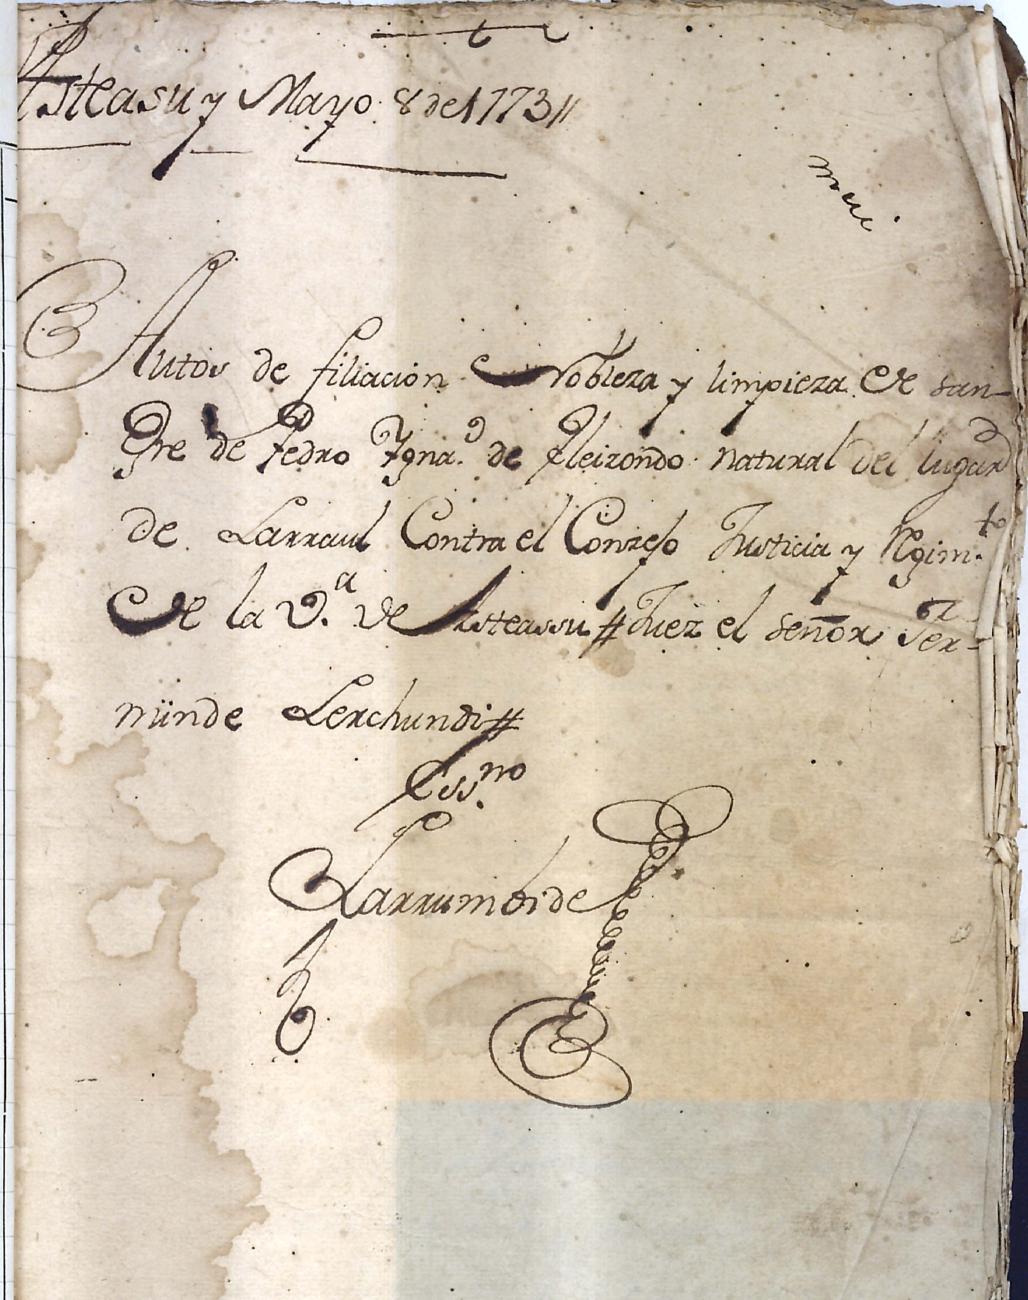 Asteasu y Mayo 8 de 1773 //
Autos de filiacion Nobleza y limpieza de san-
gre de Pedro Ygna.º de Eleizondo natural del lugar
de Larraul Contra el Conzejo Justicia y Rgim.to
de la V.ª de Asteassu # Juez el señor Ber-
münde Lerchundi #
Ess.no
Larrumbide